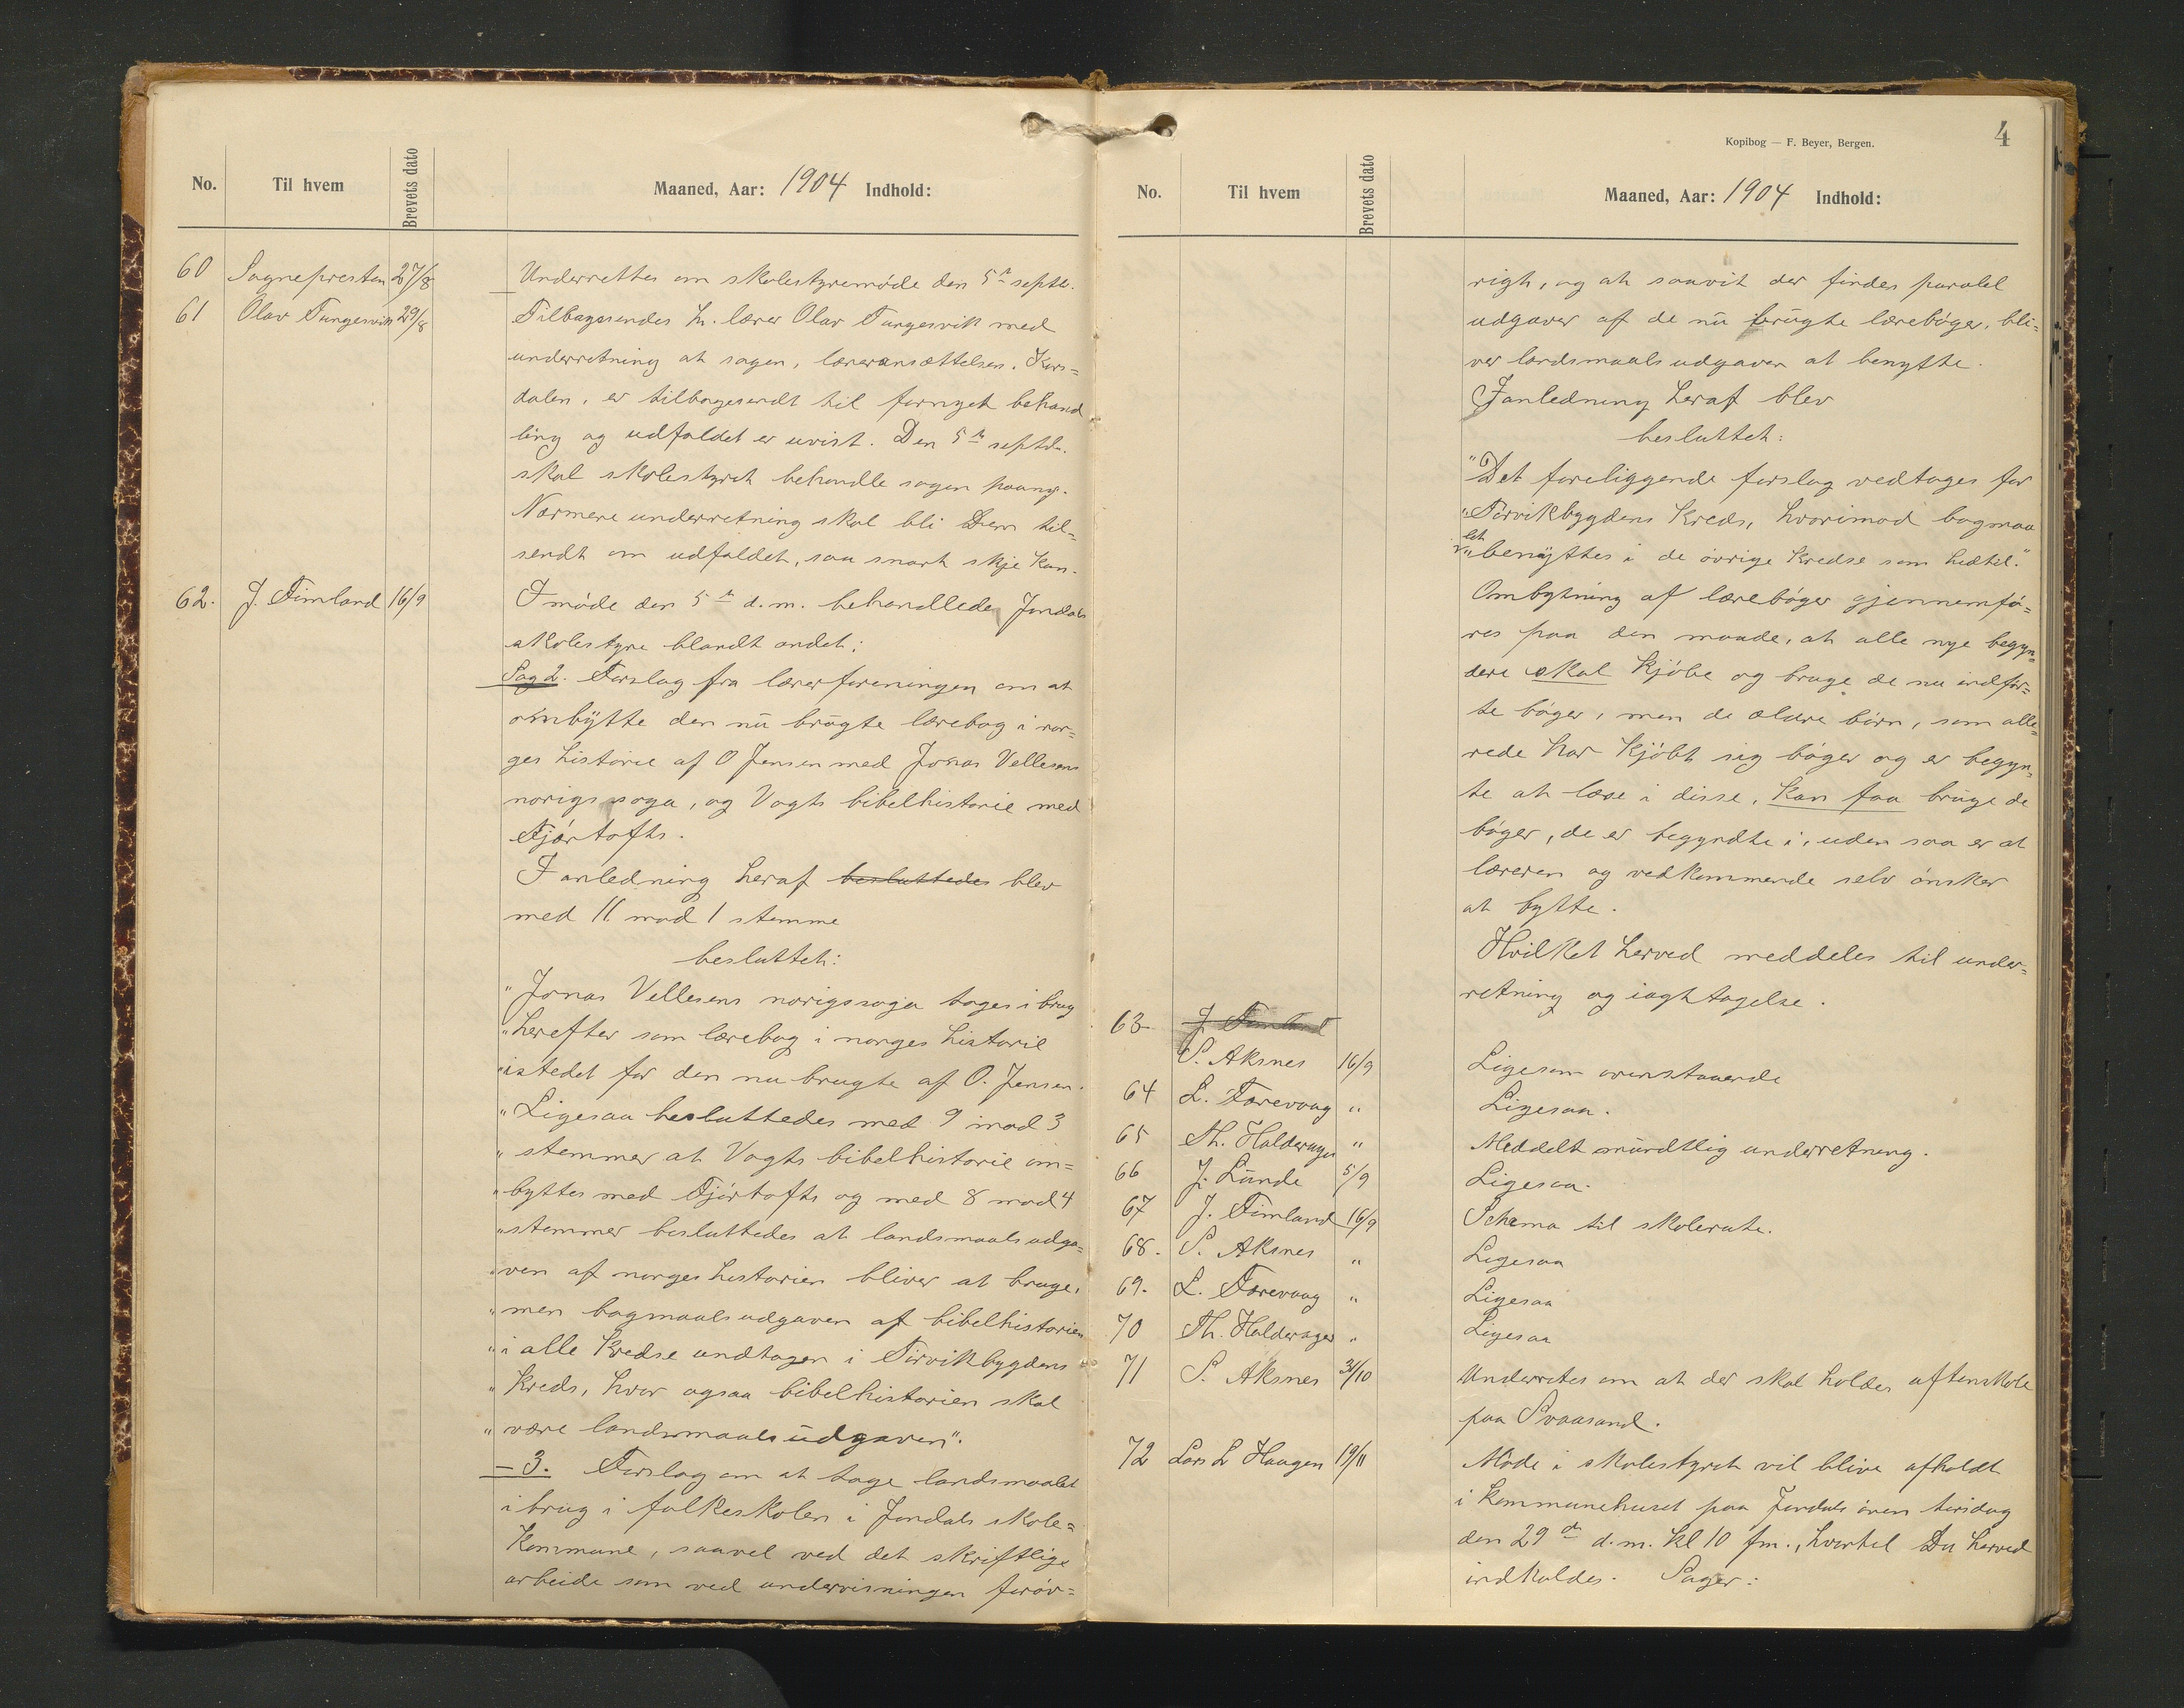 No. Til hvem Brevets dato Maaned, Aar: 1904 Indhold:
60 Sognepresten 27/8 Underrettes om skolestyremøde den 5te septbr.
61 Olav Tungesvik 29/8 Tilbagesendes hr. lærer Olav Tungesvik med
underretning at sagen, læreransættelsen i Kors=
dalen, er tilbagesendt til fornyet behand
ling og udfaldet er uvist. Den 5te septbr.
skal skolestyret behandle sagen paany.
Nærmere underretning skal bli Dem til=
sendt om udfaldet, saa snart skje kan.
62. J. Timland 16/9 I møde den 5te d.m. behandlede Jondals
skolestyre blandt andet:
Sag 2. Forslag fra lærerforeningen om at
ombytte den nu brugte lærebog i nor=
ges historie af O Jensen med Jonas Vellesens
norigssoga, og Vogts bibelhistorie med
Fjørtofts.
I anledning heraf besluttedes blev
med 11 mod 1 stemme
besluttet:
"Jonas Vellesens norigssoga tages i brug
"herefter som lærebog i norges historie
"istedet for den nu brugte af O. Jensen.
"Ligesaa besluttedes med 9 mod 3
"stemmer at Vogts bibelhistorie om=
"byttes med Fjørtofts og med 8 mod 4
"stemmer besluttedes at landsmaalsudga=
"ven af norgeshistorien bliver at bruge,
"men bogmaalsudgaven af bibelhistorien
"i alle kredse undtagen i Torvikbygdens
"kreds, hvor ogsaa bibelhistorien skal
"være landsmaalsudgaven".
– 3. Forslag om at tage landsmaalet
i brug i folkeskolen i Jondals skole=
kommune, saavel ved det skriftlige
arbeide som ved undervisningen forøv=
Kopibog — F. Beyer, Bergen.
4
No. Til hvem Brevets dato Maaned, Aar: 1904 Indhold:
rigt, og at saavit der findes paralel
udgaver af de nu brugte lærebøger, bli=
ver landsmaalsudgaven at benytte.
I anledning heraf blev
besluttet:
"Det foreliggende forslag vedtages for
"Torvikbygdens kreds, hvorimod bogmaa
let
"benyttes i de øvrige kredse som hedtil."
Ombytning af lærebøger gjennemfø=
res paa den maade, at alle nye begyn=
dere skal kjøbe og bruge de nu indfør=
te bøger, men de ældre børn, som alle=
rede har kjøbt sig bøger og er begyn=
te at læse i disse, kan faa bruge de
bøger, de er begyndte i, uden saa er at
læreren og vedkommende selv ønsker
at bytte.
Hvilket herved meddeles til under=
retning og iagttagelse.
63 J. Timland
S. Aksnes 16/9 Ligesom ovenstaaende
64 L. Torevaag " Ligesaa.
65 Th. Haldorager " Meddelt mundtlig underretning.
66 J. Lunde 5/9 Ligesaa.
67 J. Timland 16/9 Schema til skolerute.
68. S. Aksnes " Ligesaa
69. L. Torevaag " Ligesaa
70 Th. Haldorager " Ligesaa
71 S. Aksnes 31/10 Underrettes om at der skal holdes aftenskole
paa Svaasand.
72 Lars L Haugen 19/11 Møde i skolestyret vil blive afholdt
i kommunehuset paa Jondalsøren tirsdag
den 29de d.m. kl 10 fm., hvortil Du herved
indkaldes. Sager: